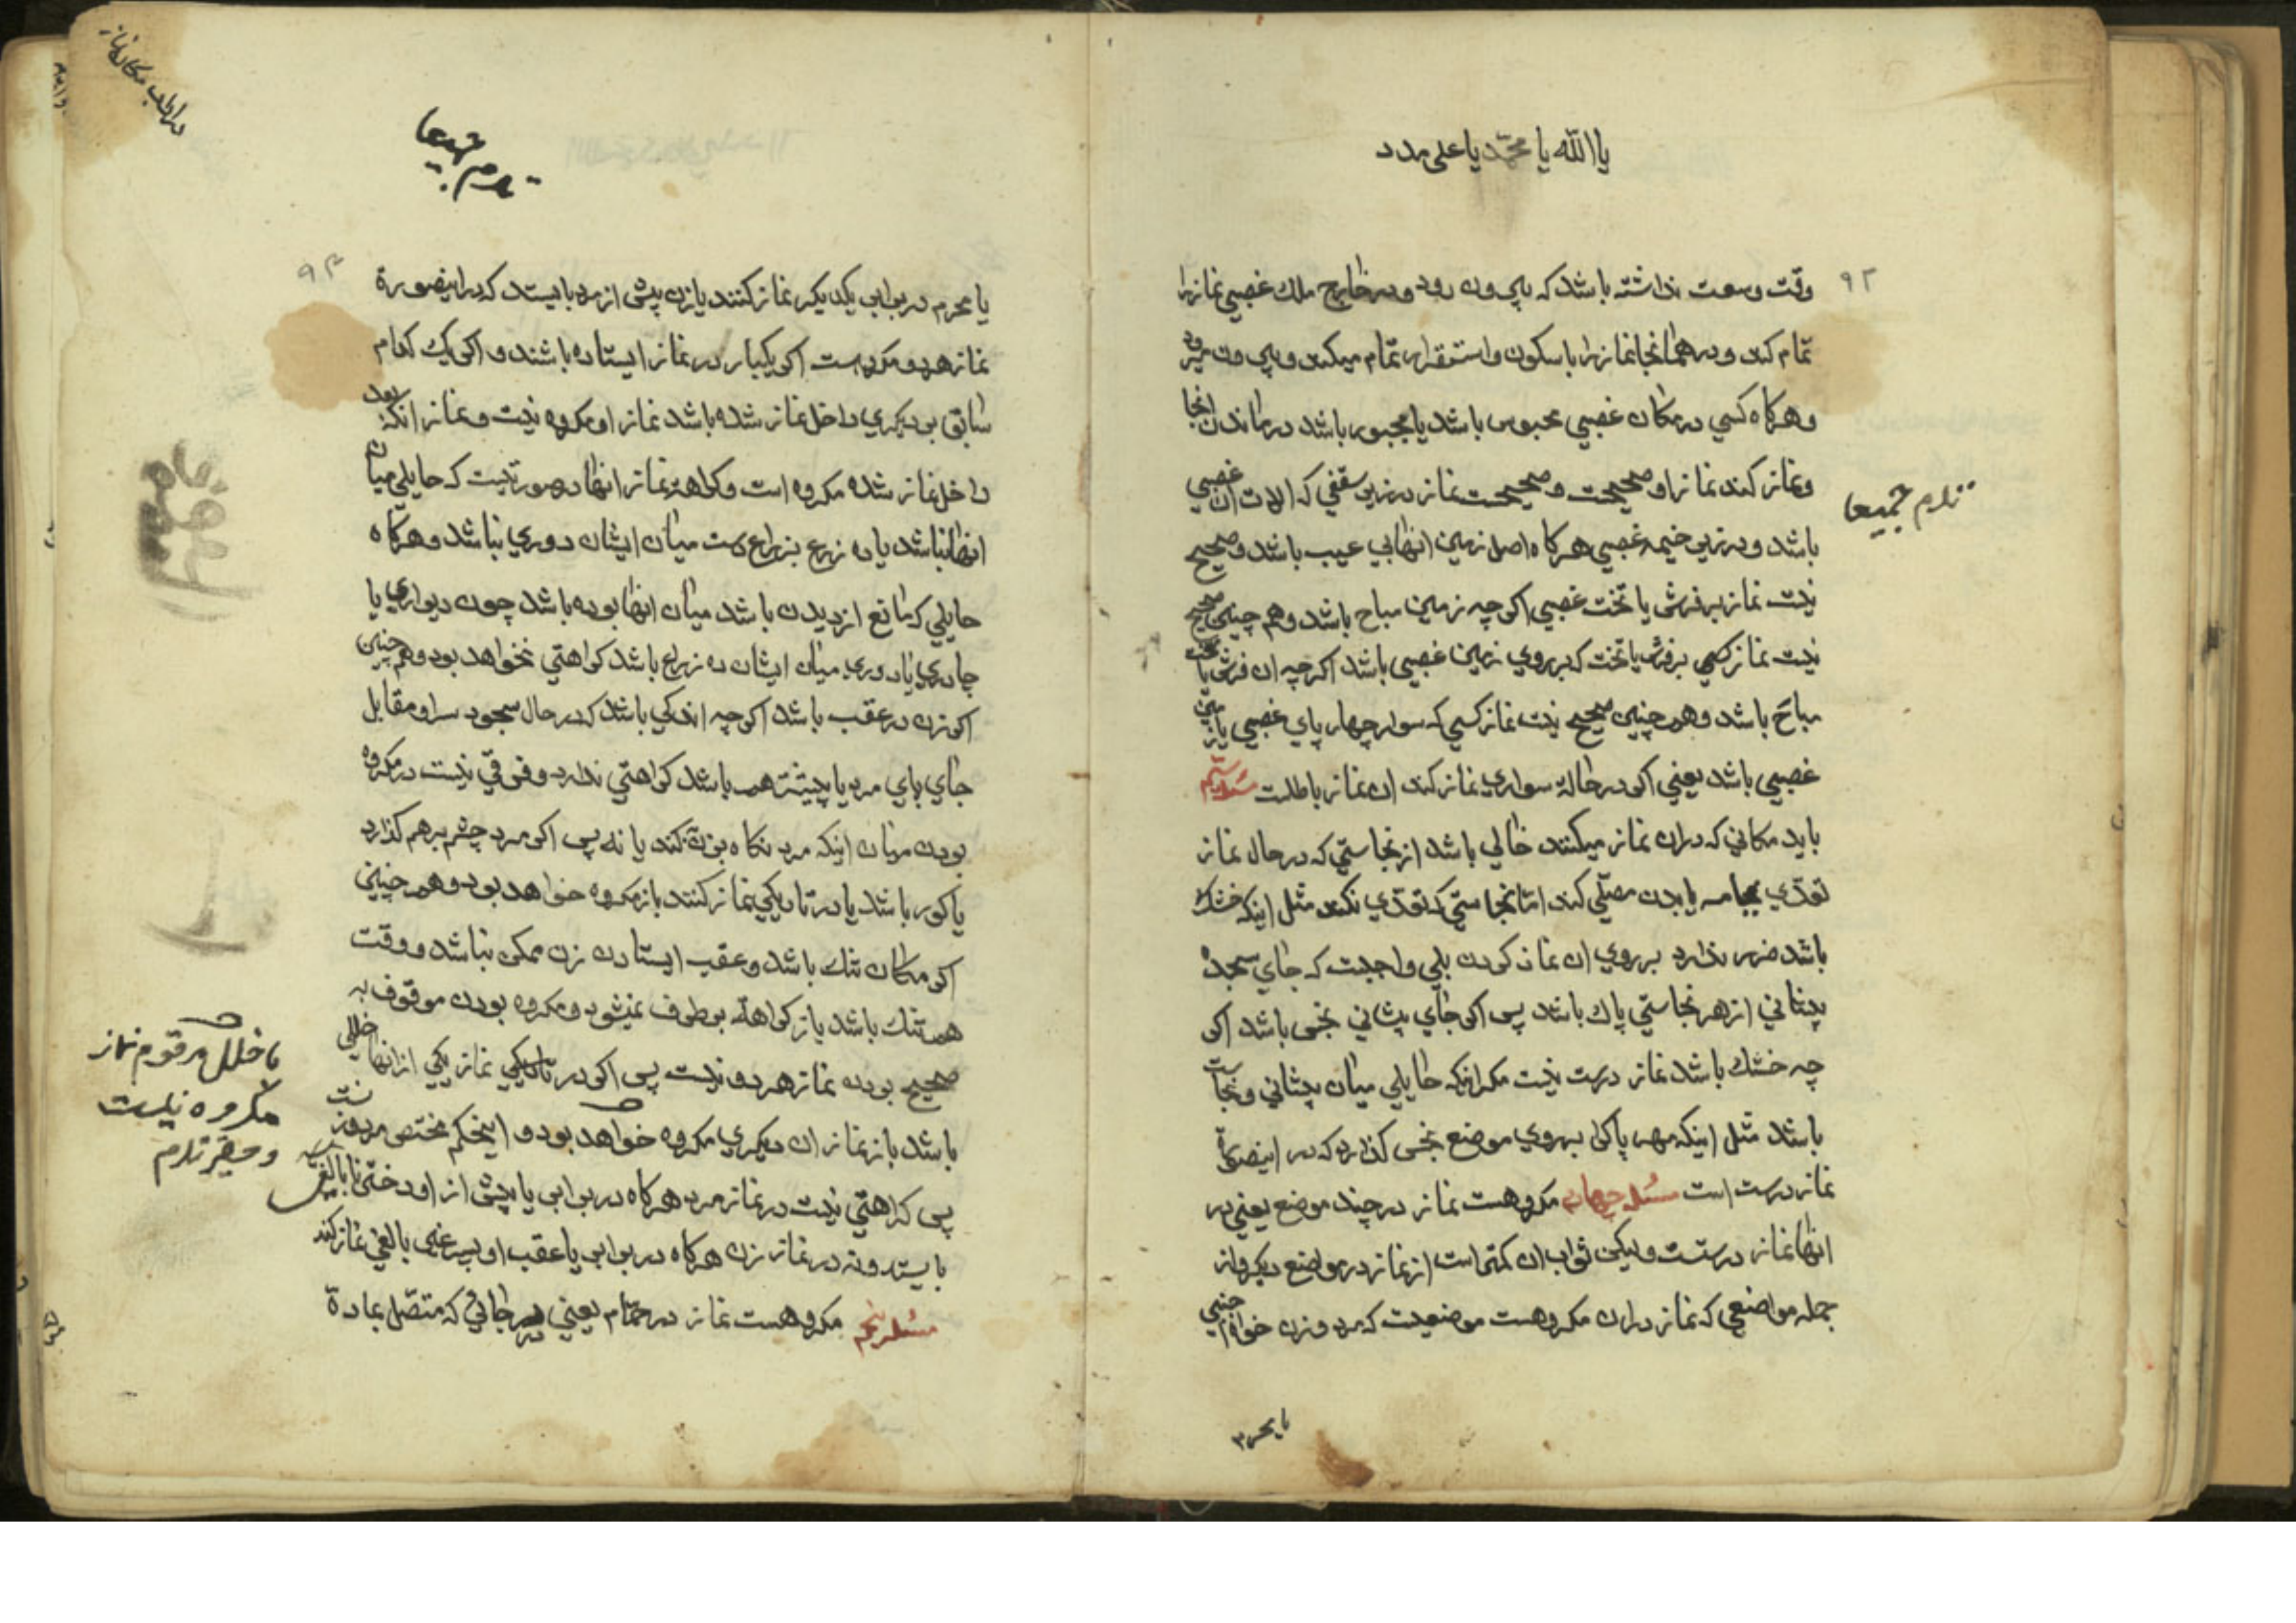 یا الله یا محمد یا علی مدد
۹۲
وقت وسعت نداشته باشد که بیرون رود و در خارج ملک غصبی نماز را
تمام کند و در همانجا نماز را با سکون و استقرار تمام میکند و بیرون میرود
و هرکاه کسی در مکان غصبی محبوس باشد یا مجبور باشد در ماندن انجا
و نماز کند نماز او صحیحست و صحیحست نماز در زیر سقفی که الات ان غصبی
باشد و در زیر خیمه غصبی هرکاه اصل زمین انها بی عیب باشد و صحیح
نیست نماز بر فرش یا تخت غصبی اکر چه زمین مباح باشد و هم چنین صحیح
نیست نماز کسی بر فرش یا تخت که بر روی زمین غصبی باشد اکر چه ان فرش یا تخت
مباح باشد و هم چنین صحیح نیست نماز کسی که سوار چهار پای غصبی یا زین
غصبی باشد یعنی اکر در حالة سواری نماز کند ان نماز باطلست مسئله سیم
باید مکانی که در ان نماز میکنند خالی باشد از نجاستی که در حال نماز
تعدّی بجامه یا بدن مصلّی کند امّا نجاستی که تعدّی نکند مثل اینکه خشک
باشد ضرر ندارد بر روی ان نماز کردن بلی واجبست که جای سجدهٔ
پیشانی از هر نجاستی پاک باشد پس اکر جای پیشانی نجس باشد اکر
چه خشک باشد نماز درست نیست مکر اینکه حایلی میان پیشانی و نجاست
باشد مثل اینکه مهر پاکرا بروی موضع نجس کذارد که در اینصورة
نماز درست است مسئله چهارم مکروهست نماز در چند موضع یعنی در
انها نماز درستست ولیکن ثواب ان کمتر است از نماز در مواضع دیکر و از
جمله مواضعی که نماز در ان مکروهست موضعیست که مرد و زن خواه اجنبی
ندارم جمیعا
یا محرم
در باب مکان نماز
ندارم جمیعا
۹۳
یا محرم در برابر یکدیکر نماز کنند یا زن پیش از مرد بایستد که در اینصورة
نماز هر دو مکروهست اکر یکبار در نماز ایستاده باشند و اکر یک کدام
سابق بر دیکری داخل نماز شده باشد نماز او مکروه نیست و نماز انکه بعد
داخل نماز شده مکروه است و کراهة نماز انها در صورتیست که حایلی میان
انها نباشد یا ده زرع بزراع دست میان ایشان دوری نباشد و هرکاه
حایلی که مانع از دیدن باشد میان انها بوده باشد چون دیواری یا
چادری یا دوری میان ایشان ده زراع باشد کراهتی نخواهد بود و هم چنین
اکر زن در عقب باشد اکر چه اندکی باشد که در حال سجود سر او مقابل
جای پای مرد یا پیشتر هم باشد کراهتی ندارد و فرقی نیست در مکروه
بودن میان اینکه مرد نکاه بزن کند یا نه پس اکر مرد چشم برهم کذارد
یا کور باشد یا در تاریکی نماز کنند باز مکروه خواهد بود و هم چنین
اکر مکان تنک باشد و عقب ایستادن زن ممکن نباشد و وقت
هم تنک باشد باز کراهة بر طرف نمیشود و مکروه بودن موقوف به
صحیح بودن نماز هر دو نیست پس اکر در تاریکی نماز یکی از انها خللی
باشد باز نماز ان دیکری مکروه خواهد بود و اینحکم مختص مرد و زنست
پس کراهتی نیست در نماز مرد هرکاه در برابر یا پیش از او دختر نابالغی
بایستد و نه در نماز زن هرکاه در برابر یا عقب او پسر غیر بالغی نماز کند
مسئله پنجم مکروهست نماز در حمّام یعنی در جائی که متصّل بعادة
با خلل مرقوم نماز
مکروه نیست